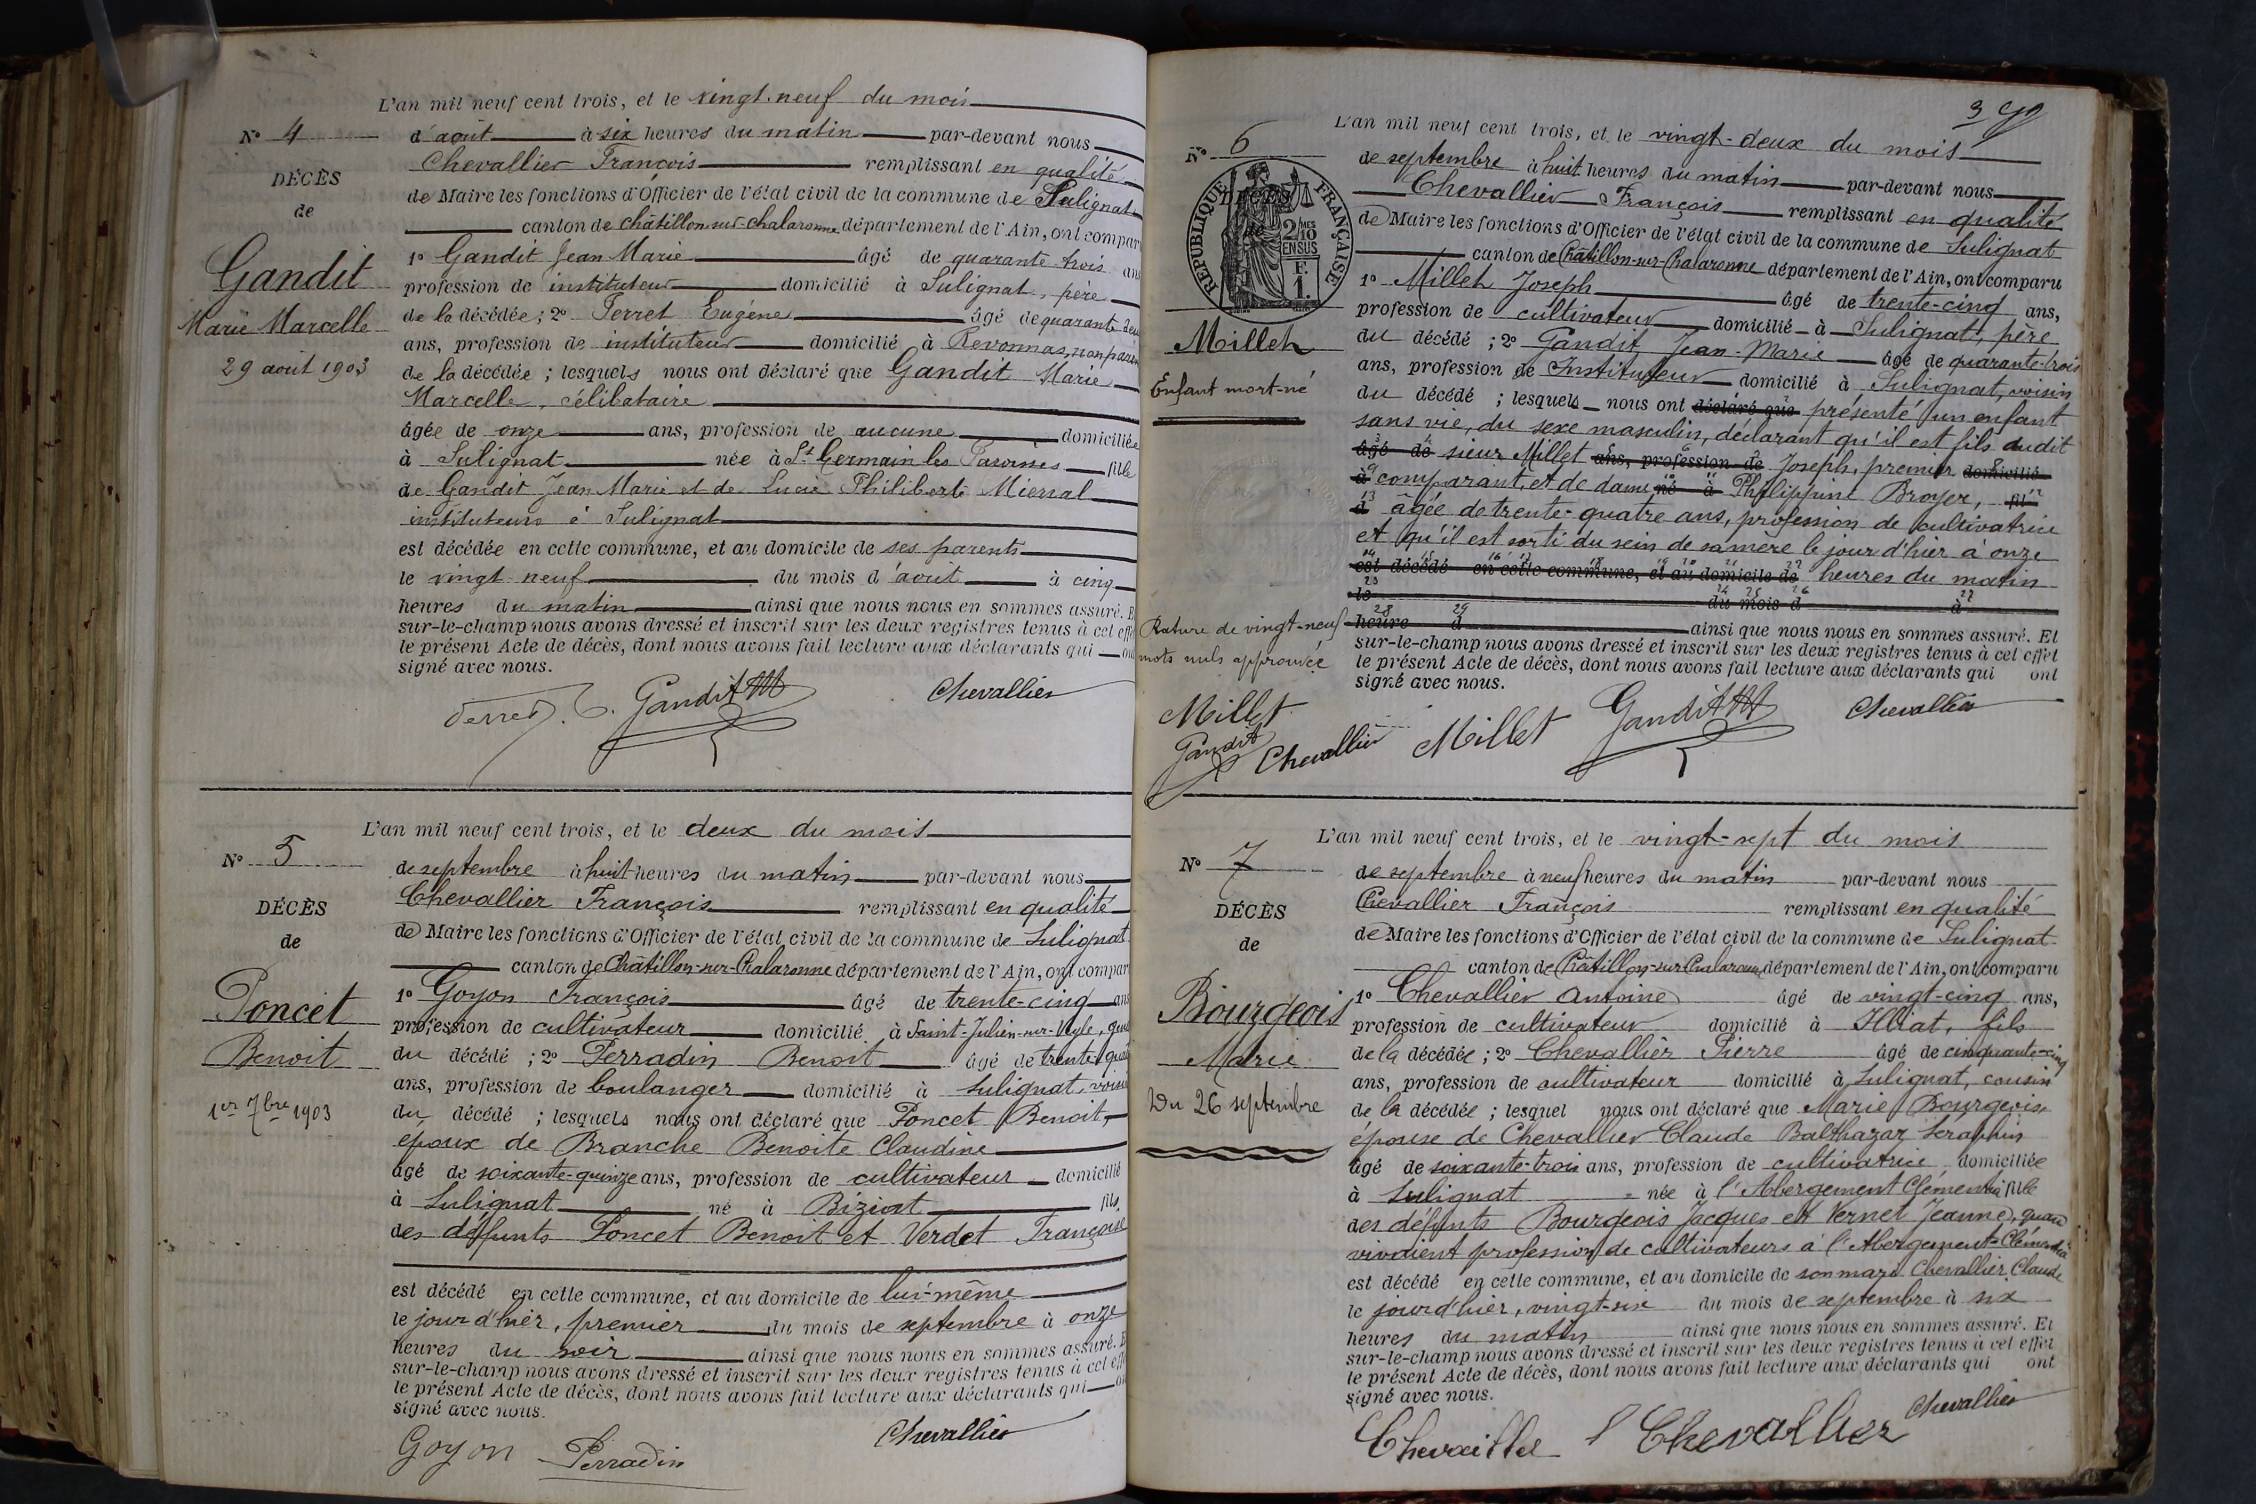 L'an mil neuf cent trois, et le vingt-neuf du mois
N° 4
d'août à six heures du matin par-devant nous
Chevallier François remplissant en qualité
DÉCÈS
de
de Maire les fonctions d'Officier de l'état civil de la commune de Sulignat
canton de Châtillon-sur-Chalaronne département de l'Ain, ont compar
Gandit
Marie Marcelle
29 août 1903
1° Gandit Jean Marie âgé de quarante trois ans
profession de instituteur domicilié à Sulignat, père
de la décédée ; 2° Ferret Eugène âgé de quarante deux
ans, profession de instituteur domicilié à Revonnas, non parent
de la décédée ; lesquels nous ont déclaré que Gandit Marie
Marcelle, célibataire
âgée de onze ans, profession de aucune domiciliée
à Sulignat née à St Germain les Paroisses fille
de Gandit Jean Marie et de Lucie Philiberte
instituteurs à Sulignat
est décédée en cette commune, et au domicile de ses parents
le vingt neuf du mois d'août à cinq
heures du matin ainsi que nous nous en sommes assuré. E
sur-le-champ nous avons dressé et inscrit sur les deux registres tenus à cet effe
le présent Acte de décès, dont nous avons fait lecture aux déclarants qui on
signé avec nous.
Ferret Gandit JM Chevallier
L'an mil neuf cent trois, et le deux du mois
N° 5
de septembre à huit heures du matin par-devant nous
Chevallier François remplissant en qualité
DÉCÈS
de
de Maire les fonctions d'Officier de l'état civil de la commune de Sulignat
canton de Châtillon-sur-Chalaronne département de l'Ain, ont compar
Poncet
Benoit
1er 7bre 1903
1° Goyon François âgé de trente-cinq ans
profession de cultivateur domicilié à Saint-Julien-sur-Veyle,
du décédé ; 2° Perradin Benoit âgé de trente-quatre
ans, profession de boulanger domicilié à Sulignat, voisin
du décédé ; lesquels nous ont déclaré que Poncet Benoit,
époux de Branche Benoite Claudine
âgé de soixante-quinze ans, profession de cultivateur domicilié
à Sulignat né à Biziat fils
des défunts Poncet Benoit et Verdet Françoise
est décédé en cette commune, et au domicile de lui-même
le jour d'hier, premier du mois de septembre à onze
heures du soir ainsi que nous nous en sommes assuré. E
sur-le-champ nous avons dressé et inscrit sur les deux registres tenus à cet effe
le présent Acte de décès, dont nous avons fait lecture aux déclarants qui on
signé avec nous.
Goyon Perradin Chevallier
3
L'an mil neuf cent trois, et le vingt-deux du mois
N° 6
de septembre à huit heures du matin par-devant nous
Chevallier François remplissant en qualité
DÉCÈS
de
RÉPUBLIQUE FRANÇAISE
2 MES 10
EN SUS
F.
1.
de Maire les fonctions d'Officier de l'état civil de la commune de Sulignat
canton de Châtillon-sur-Chalaronne département de l'Ain, ont comparu
Millet
Enfant mort-né
1° Millet Joseph âgé de trente-cinq ans,
profession de cultivateur domicilié à Sulignat, père
du décédé ; 2° Gandit Jean-Marie âgé de quarante-trois
ans, profession de Instituteur domicilié à Sulignat, voisin
du décédé ; lesquels nous ont déclaré que présenté un enfant
sans vie, du sexe masculin, déclarant qu'il est fils dudit
âgé de sieur Millet ans, profession de Joseph, premier domicilié
à comparant, et de dame né à Philippine Broyer, fil
d âgée de trente-quatre ans, profession de cultivatrice
et qu'il est sorti du sein de sa mère le jour d'hier à onze
est décédé en cette commune, et au domicile de heures du matin
le du mois d à
heure d ainsi que nous nous en sommes assuré. Et
Rature de vingt-neuf
mots nuls approuvée
sur-le-champ nous avons dressé et inscrit sur les deux registres tenus à cet effet
le présent Acte de décès, dont nous avons fait lecture aux déclarants qui ont
signé avec nous.
Millet
Gandit Chevallier Millet Gandit JM Chevallier
L'an mil neuf cent trois, et le vingt-sept du mois
N° 7
de septembre à neuf heures du matin par-devant nous
Chevallier François remplissant en qualité
DÉCÈS
de
de Maire les fonctions d'Officier de l'état civil de la commune de Sulignat
canton de Châtillon-sur-Chalaronne département de l'Ain, ont comparu
Bourgeois
Marie
Du 26 septembre
1° Chevallier Antoine âgé de vingt-cinq ans,
profession de cultivateur domicilié à Illiat, fils
de la décédée ; 2° Chevallier Pierre âgé de cinquante-cinq
ans, profession de cultivateur domicilié à Sulignat, cousin
de la décédée ; lesquel nous ont déclaré que Marie Bourgeois
épouse de Chevallier Claude Balthazar Séraphin
âgé de soixante-trois ans, profession de cultivatrice domiciliée
à Sulignat née à l'Abergement Clémentia fille
des défunts Bourgeois Jacques et Vernet Jeanne, quand
vivaient profession de cultivateurs à l'Abergement-Clémentia
est décédé en cette commune, et au domicile de son mari Chevallier Claude
le jour d'hier, vingt-six du mois de septembre à six
heures du matin ainsi que nous nous en sommes assuré. Et
sur-le-champ nous avons dressé et inscrit sur les deux registres tenus à cet effet
le présent Acte de décès, dont nous avons fait lecture aux déclarants qui ont
signé avec nous.
Chevallier
Chevallier